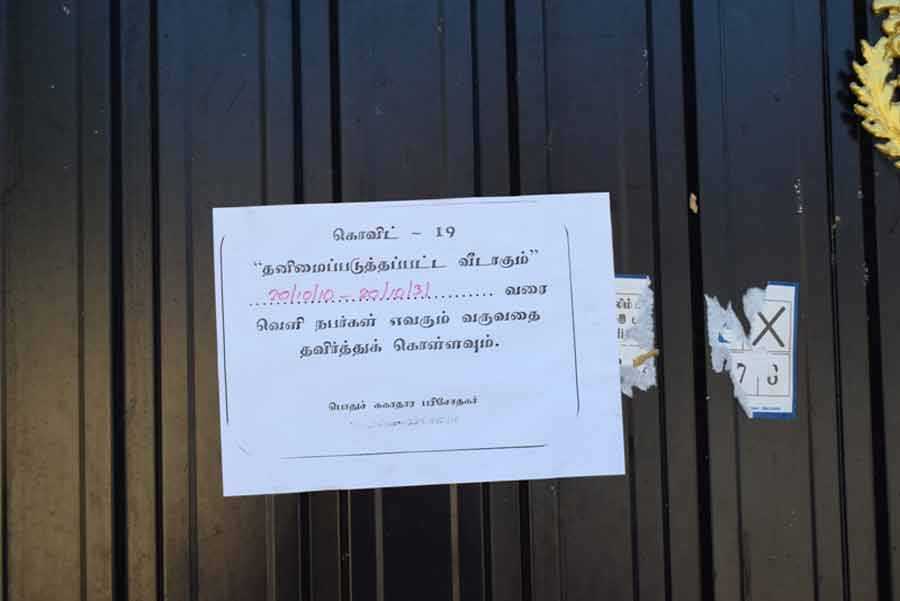 கொவிட் - 19
“தனிமைப்படுத்தப்பட்ட வீடாகும்”
20/10/10 - 20/10/31 வரை
வெளி நபர்கள் எவரும் வருவதை
தவிர்த்துக் கொள்ளவும்.
பொதுச் சுகாதார பரிசோதகர்
X
7 3